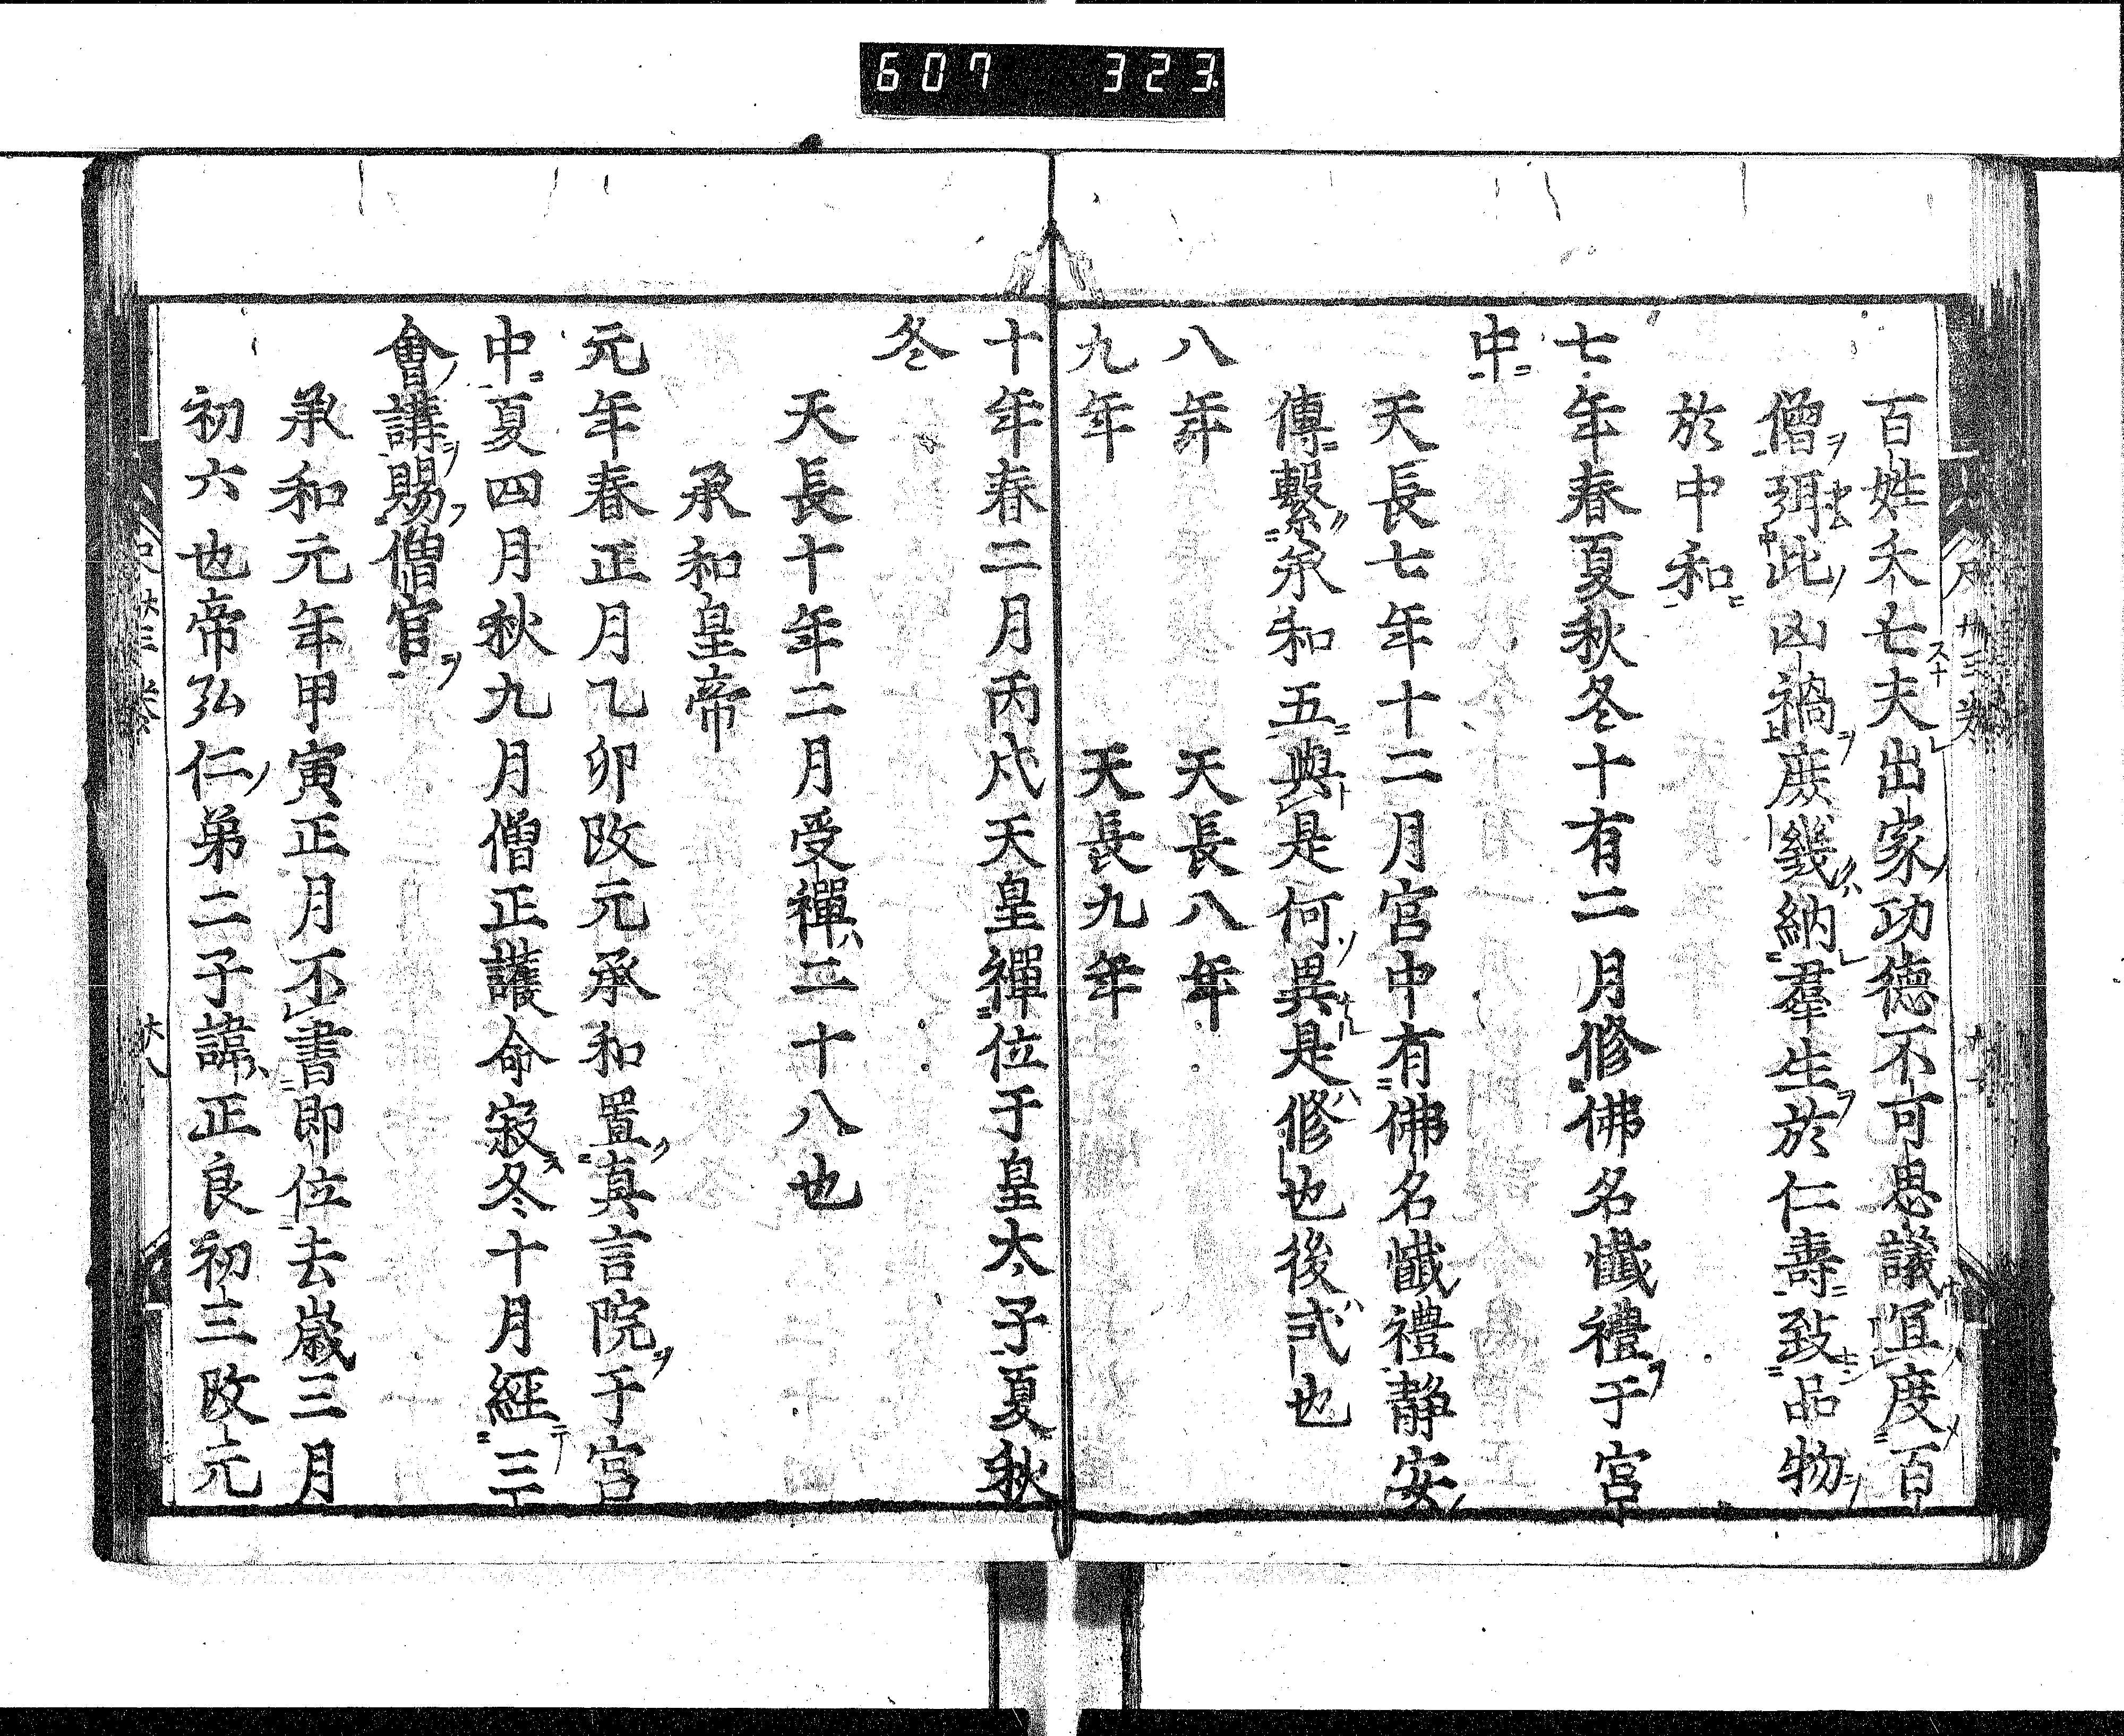 607 323
百姓夭亡夫出家功德不可思議宜度百
僧弭此凶禍庶幾納羣生於仁壽致品物
於中和
七年春夏秋冬十有二月修佛名懺禮于宮
中
天長七年十二月宮中有佛名懺禮静安
傳繫承和五與是何異是修也後式也
八年 天長八年
九年 天長九年
十年春二月丙戌天皇禪位于皇太子夏秋
冬
天長十年二月受禪二十八也
承和皇帝
元年春正月乙卯改元承和置真言院于宮
中夏四月秋九月僧正護命寂冬十月經三
會講賜僧官
承和元年甲寅正月不書即位去歲三月
初六也帝弘仁第二子諱正良初三改元